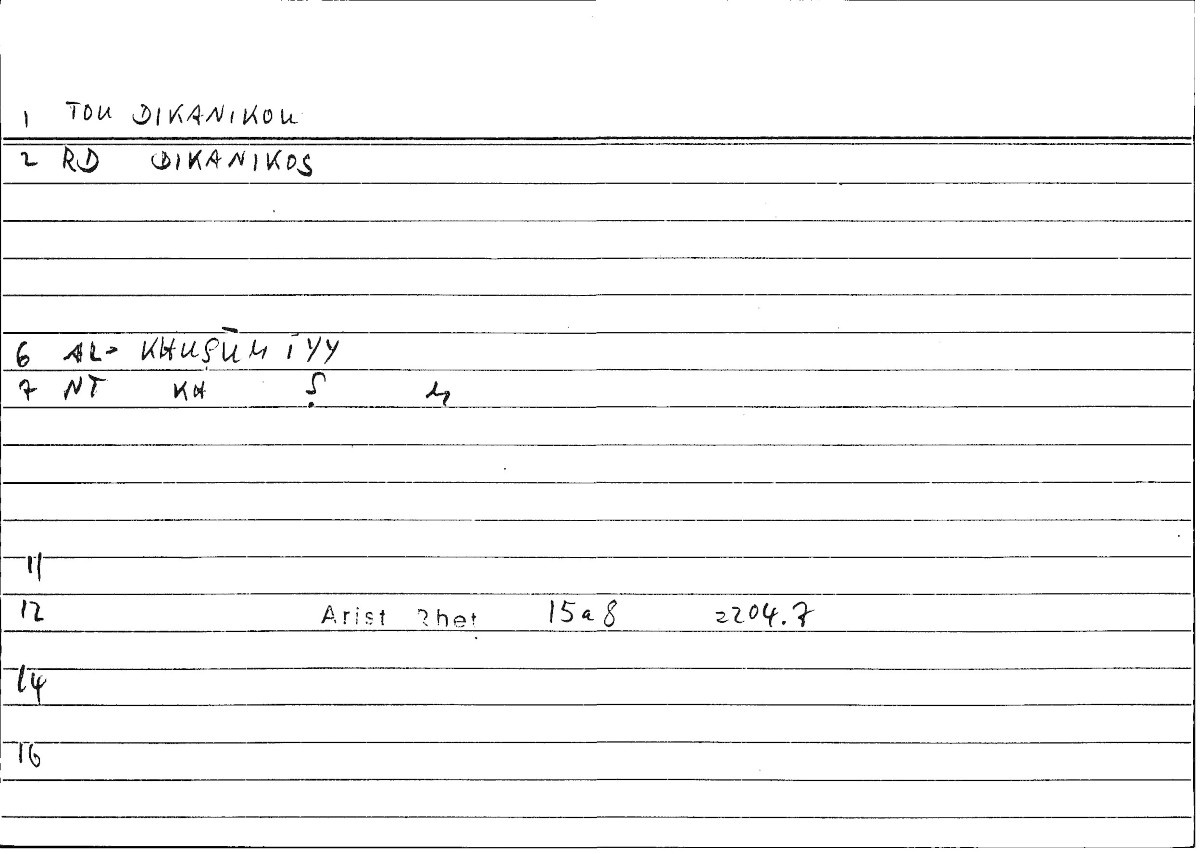 1 TOU DIKANIKOU
2 RD DIKANIKOS
6 AL- KHUṢŪMĪYY
7 NT KH Ṣ M
11
12 Arist Rhet 15a8 2204.7
14
16